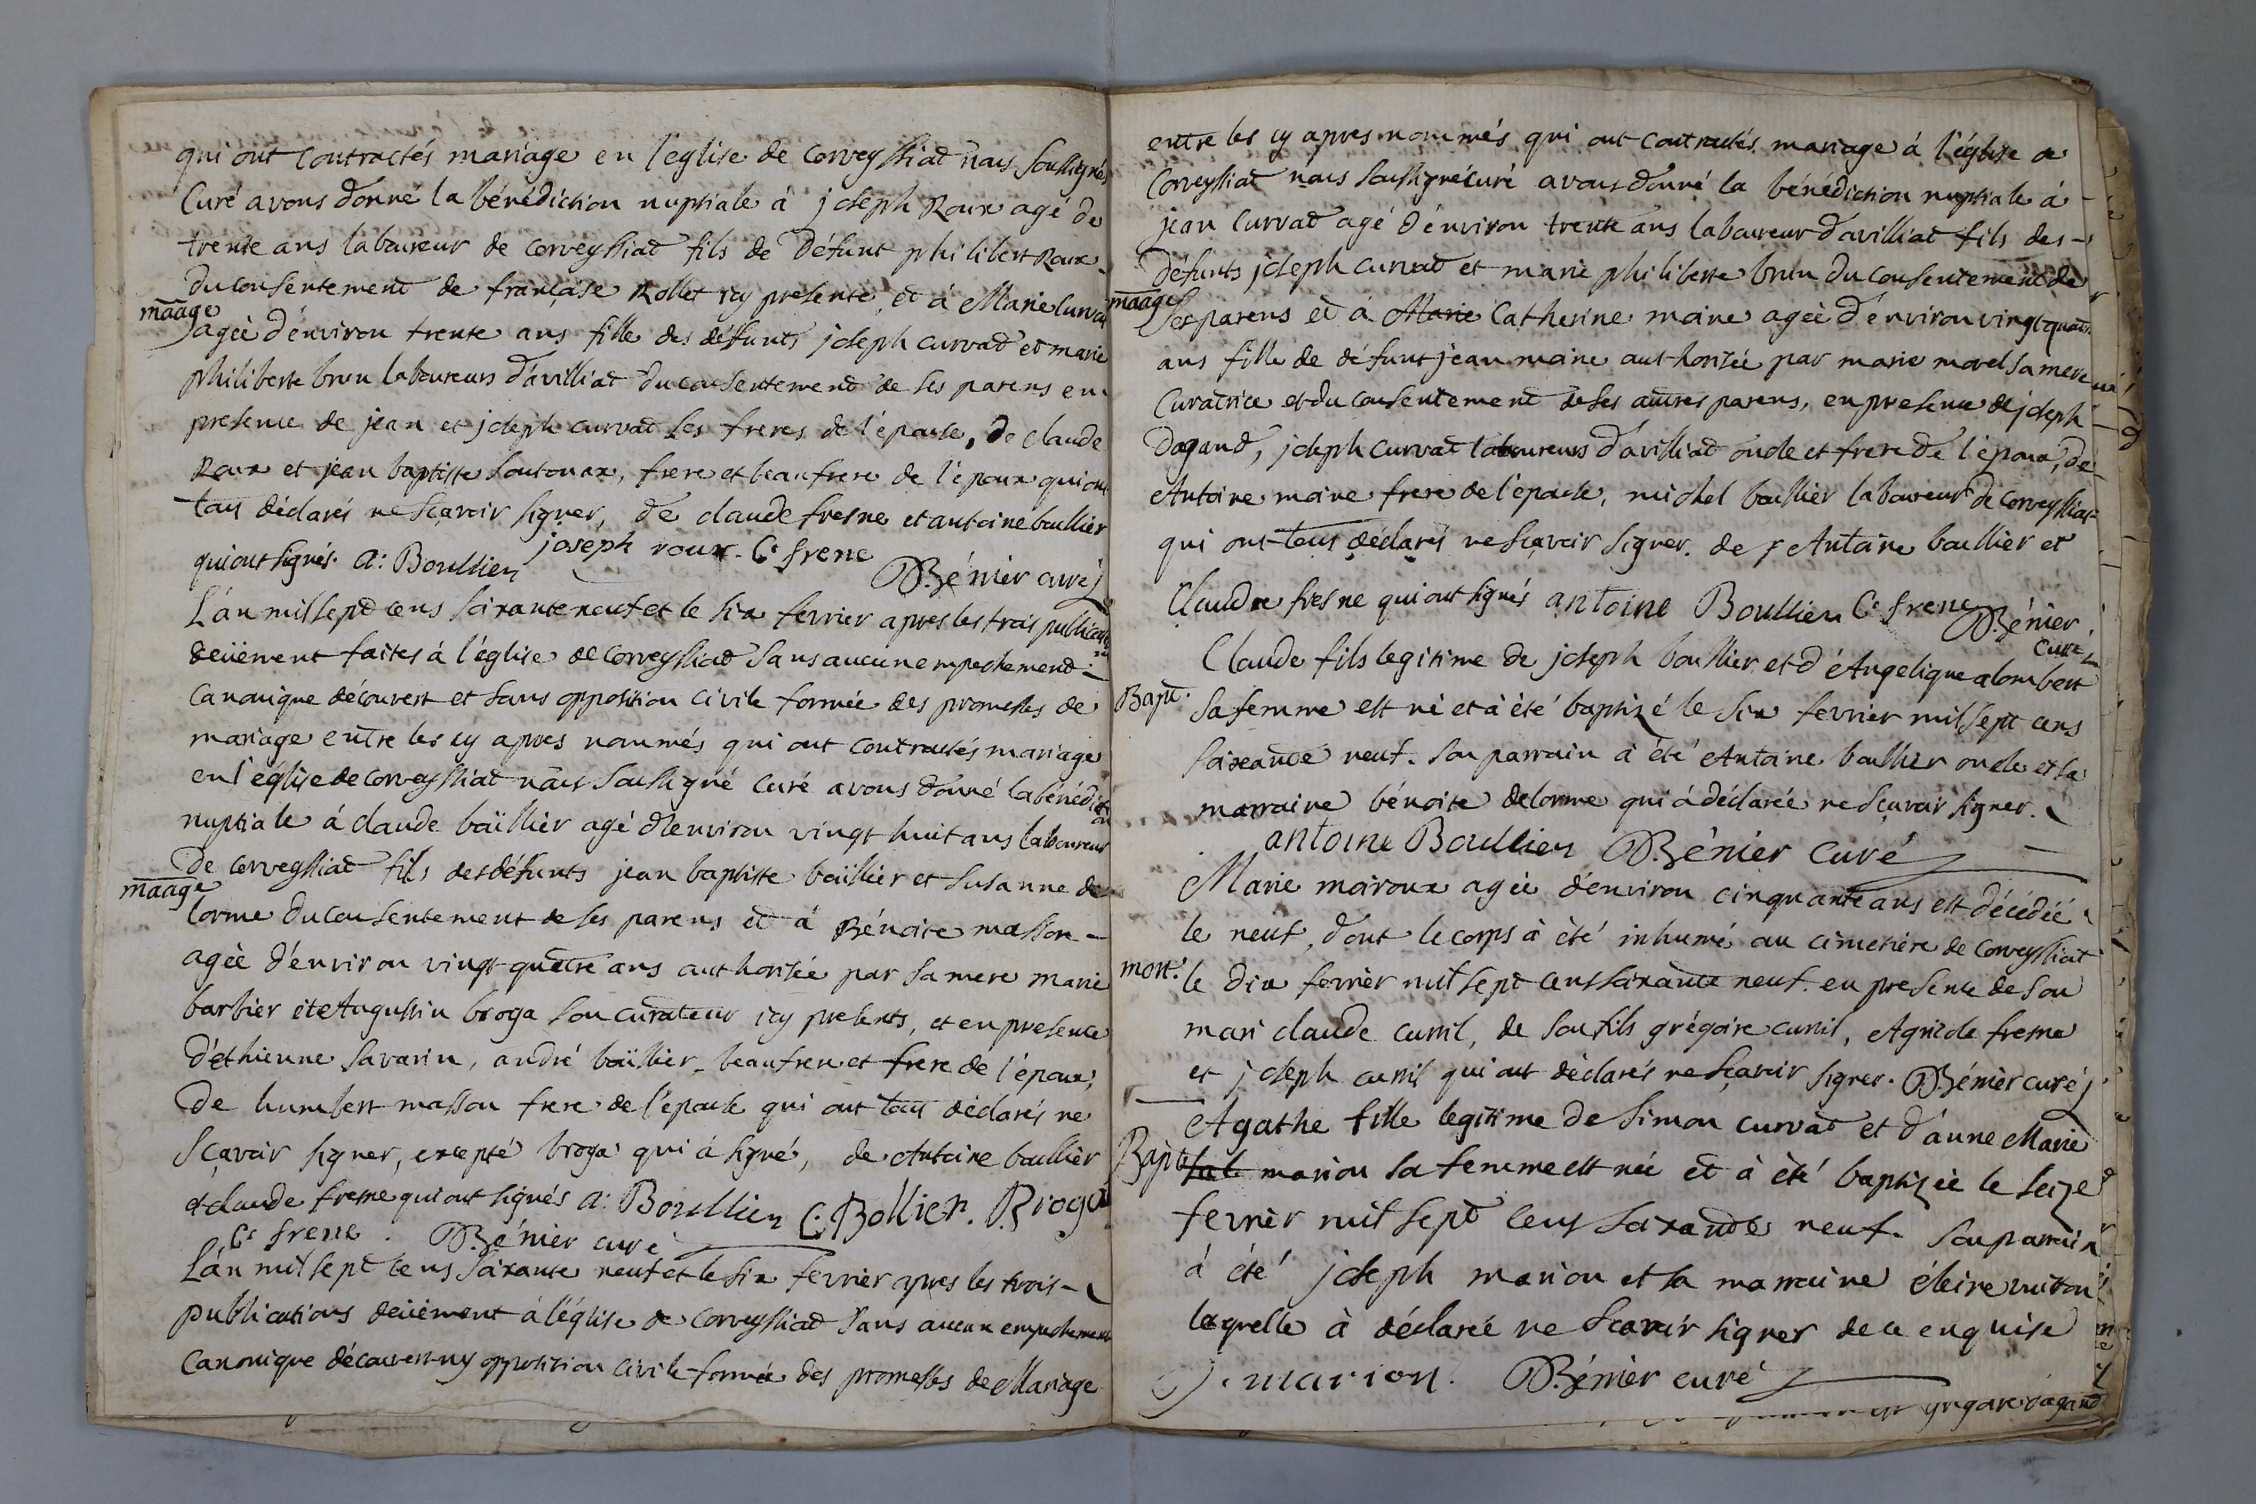 qui ont contractés mariage en l'eglise de corveyssiat nous soussignés
Curé avons donné la bénédiction nuptiale à joseph Roux agé de
trente ans laboureur de corveyssiat fils de défunt philibert Roux
du consentement de françoise Rollet icy presente, et à Marie Curvat
māage
agéé d'énviron trente ans fille des défunts joseph curvat et marie
philiberte brun laboureurs d'avilliat du consentement de ses parens en
presence de jean et joseph curvat ses freres de l'épouse, de claude
Roux et jean baptiste Soutoux, frere et beaufrere de l'époux qui ont
tous déclarés ne sçavoir signer, de claude fresne et antoine boullier
qui ont signés. a: Boullier joseph roux. Ce frene Bénier curé
L'án mil sept cens soixante neuf et le six fevrier apres les trois publications
deüement faites à l'église de corveyssiat sans aucun empechement
canonique découvert et sans opposition civile formée des promesses de
mariage entre les cy apres nommés qui ont contractés mariage
en l'église de corveyssiat nous soussigné curé avons donné la bénédiction
nuptiale à claude boüillier agé d'environ vingt huit ans laboureur
de corveyssiat fils des défunts jean baptiste boüillier et susanne de
māage
lorme du consentement de ses parens et à Bénoite masson
agéé d'énviron vingt quatre ans authorisée par sa mere marie
barbier et Augustin broga son curateur icy presents, et en presence
d'éthienne savarin, andré boüillier beaufrere et frere de l'époux,
de humbert masson frere de l'épouse qui ont tous déclarés ne
sçavoir signer, excepté broga qui à signé, de Antoine boullier
et claude fresne qui ont signés a: Boullier C. Bollier. Broga
Ce frene. Bénier curé
L'án mil sept cens soixante neuf et le six fevrier apres les trois
publications deüement à l'église de corveyssiat sans aucun empechement
canonique découvert ny opposition civile formée des promesses de Mariage
entre les cy apres nommés qui ont contractés mariage à l'église de
Corveyssiat nous soussigné curé avons donné la bénédiction nuptiale à
jean curvat agé d'énviron trente ans laboureur d'avilliat fils des
défunts joseph curvat et marie philiberte brun du consentement de
māage
ses parens et à Marie Catherine moine agéé d'environ vingt quatre
ans fille de défunt jean moine authorisée par marie morel sa mere
Curatrice et du consentement de ses autres parens, en presence de joseph
Dagand, joseph curvat laboureurs d'avilliat oncle et frere de l'époux, de
Antoine moine frere de l'épouse, michel boullier laboureur de corveyssiat
qui ont tous déclarés ne sçavoir signer. de Antoine boullier et
Claude fresne qui ont signés antoine Boullier Ce frene Bénier
Curé
Claude fils legitime de joseph boullier et d'Angelique alombert
Bapt.
sa femme est né et à été baptizé le six fevrier mil sept cens
soixante neuf. son parrain à été Antoine boullier oncle et sa
marraine bénoite delorme qui à déclarée ne sçavoir signer.
antoine Boullier Bénier Curé
Marie moiroux agéé d'énviron cinquante ans est décédéé
le neuf, dont le corps à été inhumé au cimetière de corveyssiat
mort.
le dix fevrier mil sept cens soixante neuf. en presence de son
mari claude curnil, de son fils grégoire curnil, Agricole fresne
et joseph curnil qui ont déclarés ne sçavoir signer. Bénier curé
Agathe fille legitime de Simon curvat et d'ánne Marie
Bapt.
marion sa femme est née et à été baptizéé le seize
fevrier mil sept cens soixante neuf. son parrain
à été joseph marion et sa marraine
laquelle à déclaréé ne sçavoir signer de ce enquise
J. marion. Bénier curé